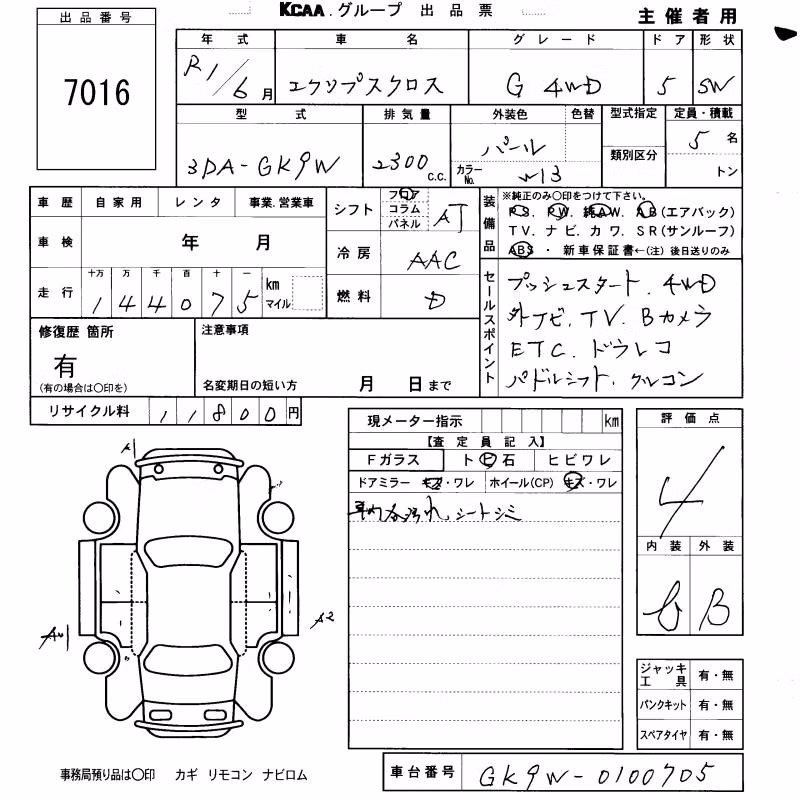 KCAA.グループ 出品票
主催者用
出品番号
7016
年式 車名 グレード ドア 形状
R1/6月 エクリプスクロス G 4WD 5 SW
型式 排気量 外装色 色替 型式指定 定員・積載
3DA-GK9W 2300 c.c. パール 5名
カラーNo. W13 類別区分 トン
車歴 自家用 レンタ 事業.営業車
車検 年 月
走行 十万 万 千 百 十 一 km マイル
144075
シフト フロア コラム パネル AT
冷房 AAC
燃料 D
装備品 ※純正のみ○印をつけて下さい。
PS. PW. 純AW. AB(エアバック)
TV. ナビ. カワ. SR(サンルーフ)
ABS ・ 新車保証書←(注) 後日送りのみ
セールスポイント
プッシュスタート. 4WD
外ナビ. TV. Bカメラ
ETC. ドラレコ
パドルシフト. クルコン
修復歴 箇所 注意事項
有
(有の場合は○印を) 名変期日の短い方 月 日まで
リサイクル料 11800円
現メーター指示 km
【査定員記入】
Fガラス ト ビ 石 ヒビワレ
ドアミラー キズ・ワレ ホイール(CP) キズ・ワレ
車内各汚れ シートシミ
評価点
4
内装 外装
B
A1
A2
ジャッキ工具 有・無
パンクキット 有・無
スペアタイヤ 有・無
事務局預り品は○印 カギ リモコン ナビロム
車台番号 GK9W-0100705